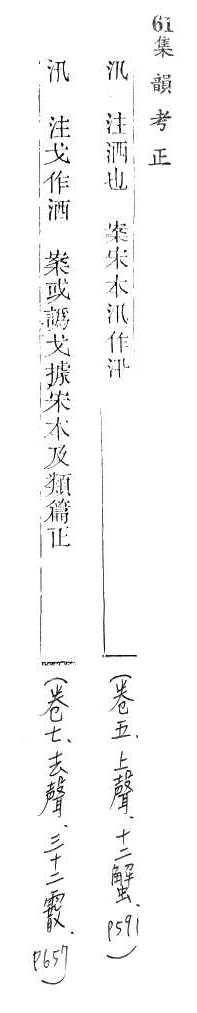 61集韻考正
汎 注洒也 案宋本汎作汛 (卷五、上聲、十二蟹 P591)
汛 注戈作洒 案或譌戈據宋本及類篇正 (卷七、去聲、三十二霰、P657)